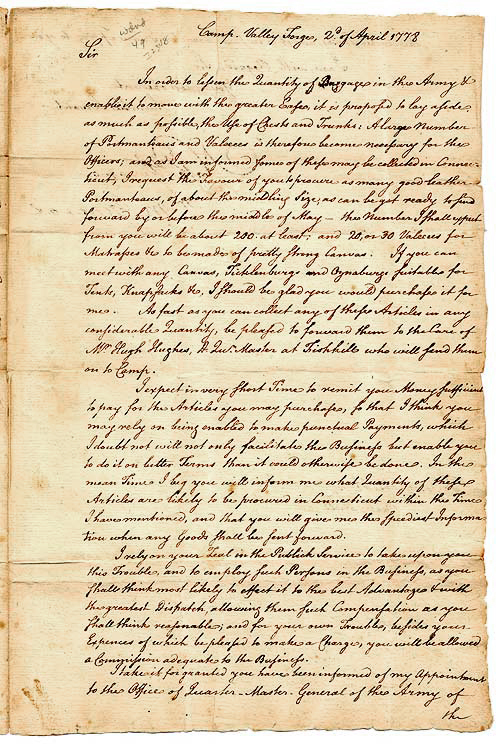 Camp Valley Forge, 2d. of April 1778
Sir
In order to lessen the Quantity of Baggage in the Army &
enable it to move with the greater Ease, it is proposed to lay aside
as much as possible, the Use of Chests and Trunks: A large Number
of Portmanteaus and Valeces is therefore become necessary for the
Officers; and as I am informed some of these may be collected in Connec-
ticut; I request the Favour of you to procure as many good leather
Portmanteaus, of about the middling Size, as can be got ready to send
forward by or before the middle of May — the Number I shall expect
from you will be about 200. at least; and 20, or 30 Valeces for
Matrasses &c to be made of pretty strong Canvas. If you can
meet with any Canvas, Ticklenburgs and Oznaburgs suitable for
Tents, Knapsacks &c, I should be glad you would purchase it for
me. As fast as you can collect any of these Articles in any
considerable Quantity, be pleased to forward them to the Care of
Mr. Hugh Hughes, D. Qur. Master at Fishkill who will send them
on to Camp.
I expect in very short Time to remit you Money sufficient
to pay for the Articles you may purchase, so that I think you
may rely on being enabled to make punctual Payments, which
I doubt not will not only facilitate the Business but enable you
to do it on better Terms than it could otherwise be done. In the
mean Time I beg you will inform me what Quantity of these
Articles are likely to be procured in Connecticut within the Time
I have mentioned, and that you will give me the speediest Informa-
tion when any Goods shall be sent forward.
I rely on your Zeal in the Publick Service to take upon you
this Trouble, and to employ such Persons in the Business, as you
shall think most likely to effect it to the best Advantage & with
the greatest Dispatch, allowing them such Compensation as you
shall think reasonable; and for your own Troubles, besides your
Expences of which be pleased to make a Charge, you will be allowed
a Commission adequate to the Business.
I take it for granted you have been informed of my Appointment
to the Office of Quarter-Master-General of the Army of
the